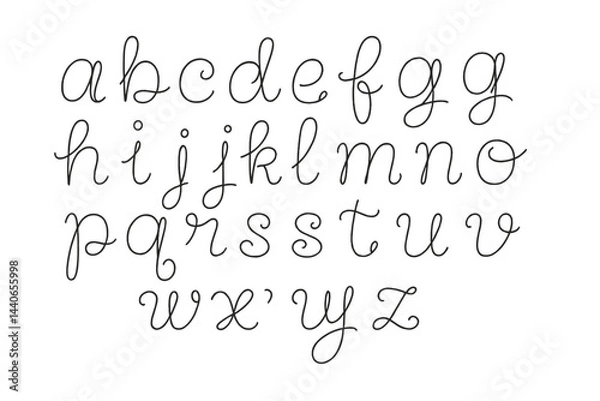 abcdefgg
hijjklmno
pqrsstuv
wx'yz
Adobe Stock | #1440655998